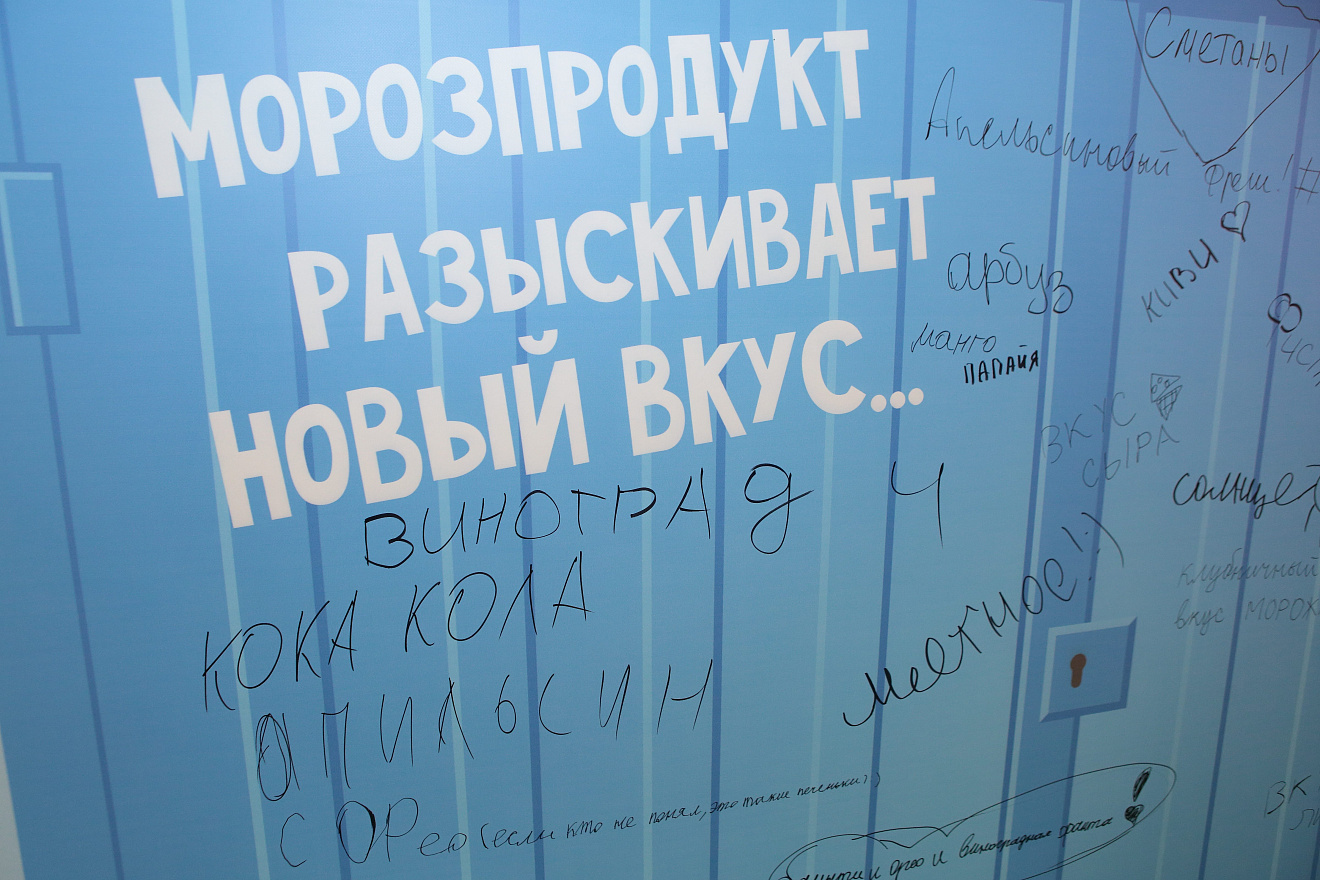 МОРОЗПРОДУКТ
РАЗЫСКИВАЕТ
НОВЫЙ ВКУС...
Сметаны
Апельсиновый фреш! #
арбуз
киви
манго
ПАПАЙЯ
ВКУС
СЫРА
ВИНОГРАД
солнце
клубничный
вкус МОРОЖ
КОКА КОЛА
Мятное! :)
АПИЛЬСИН
С ОРео (если кто не понял, это такие печеньки :)
и орео и виноградная фанта!
ВК